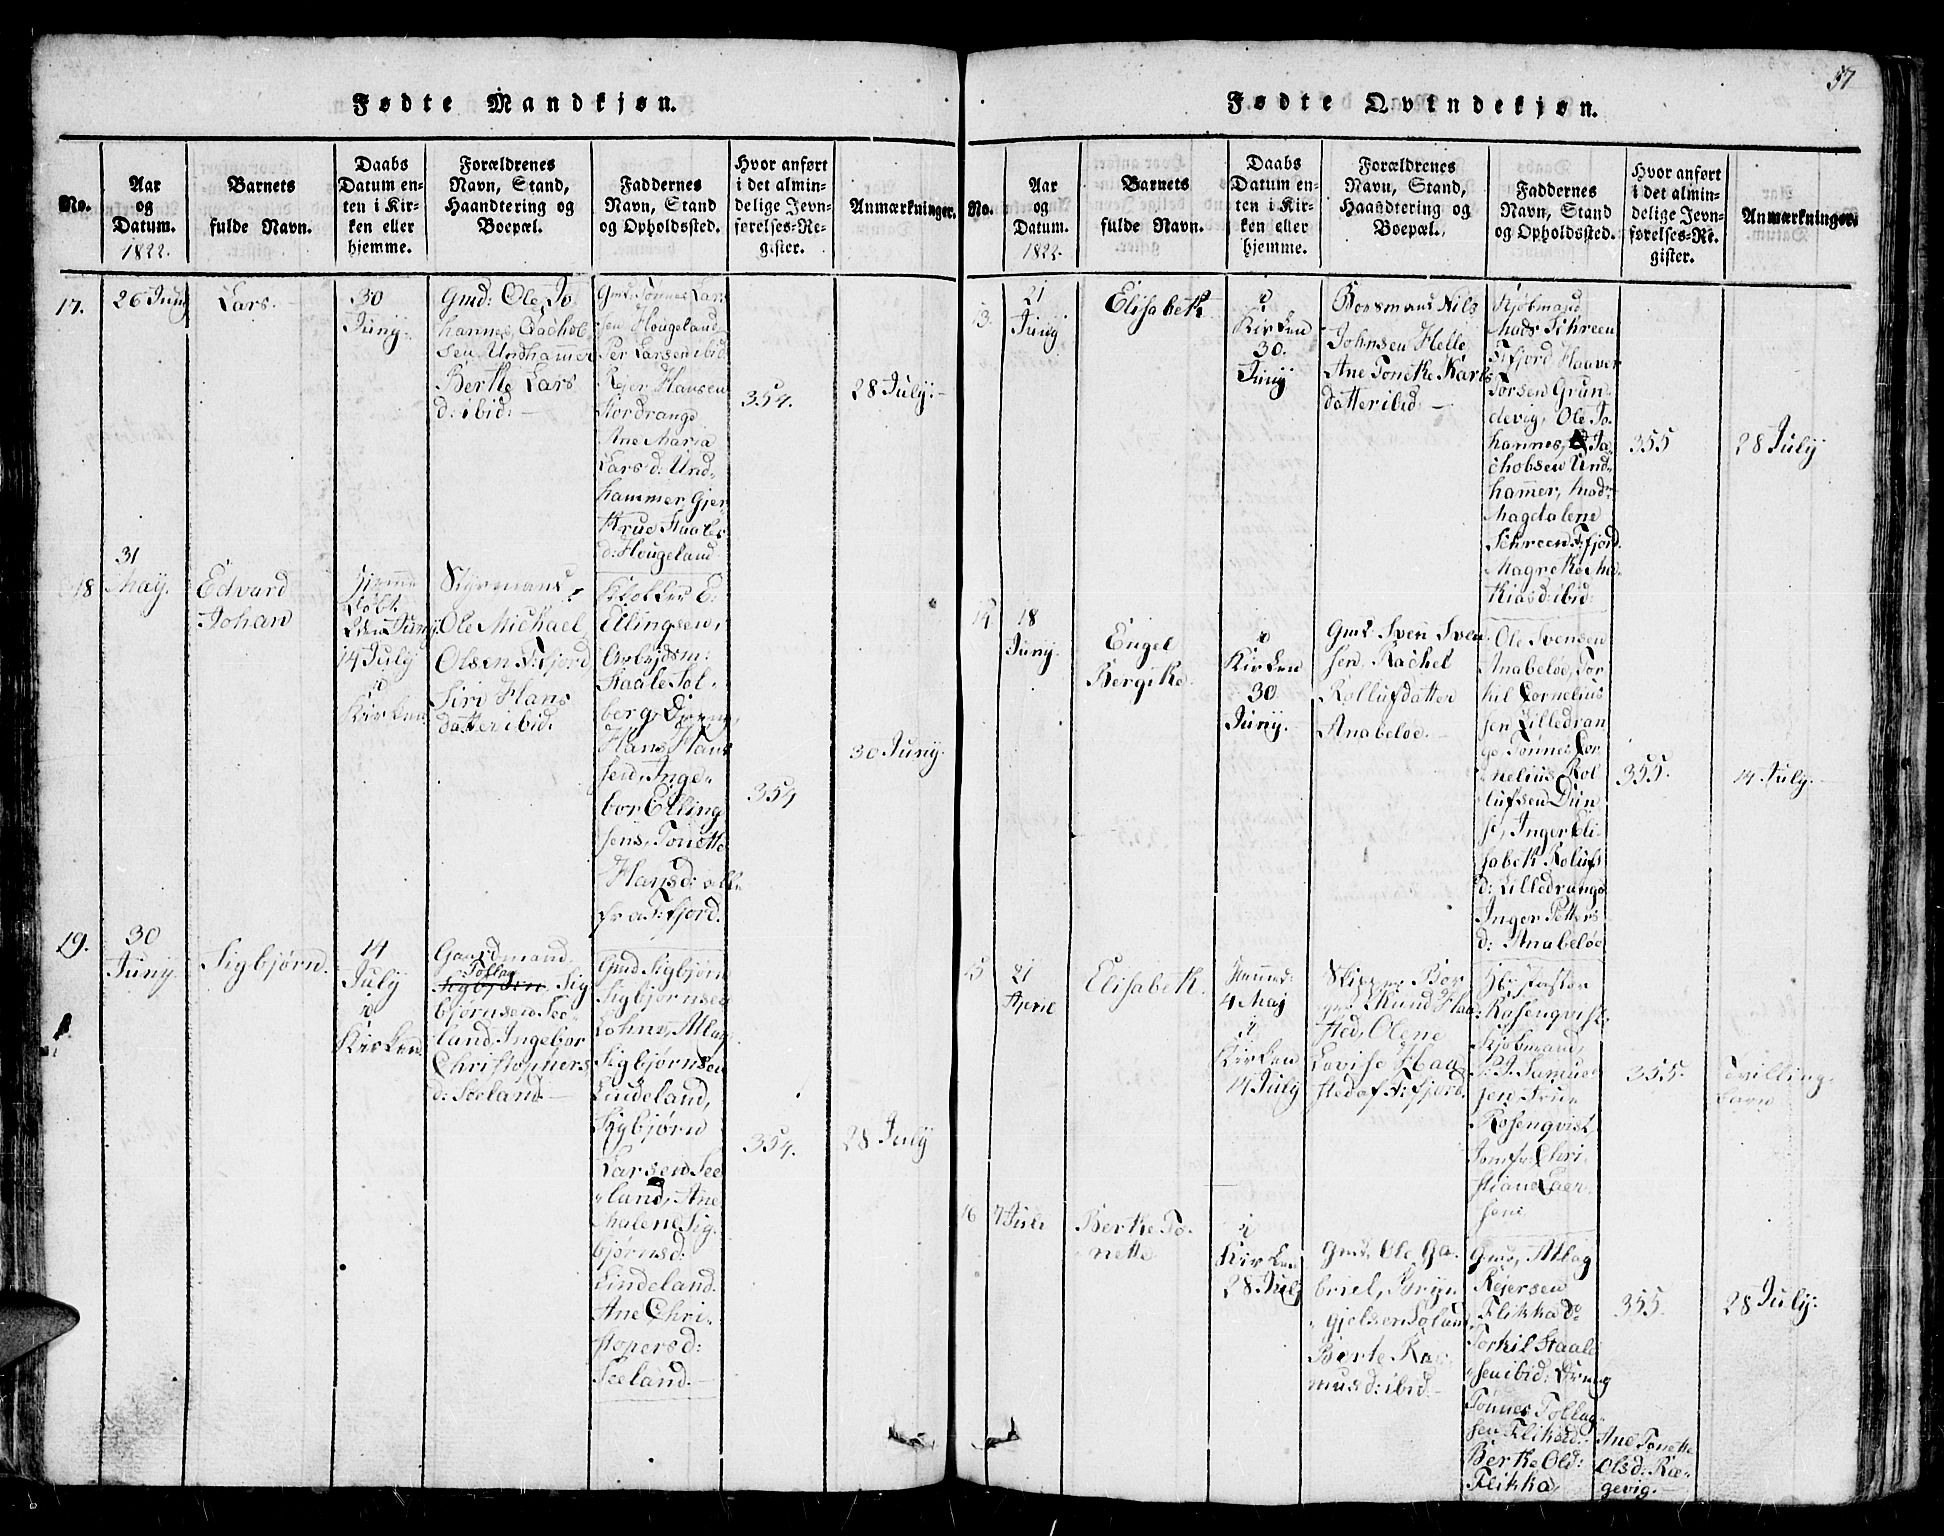 Fødte Mandkjøn.
No.
Aar
og
Datum.
1822.
Barnets
fulde Navn.
Daabs
Datum en-
ten i Kir-
ken eller
hjemme.
Forældrenes
Navn, Stand,
Haandtering og
Boepæl.
Faddernes
Navn, Stand
og Opholdssted.
Hvor anført
i det almin-
delige Jevn-
førelses-Re-
gister.
Anmærkninger.
17.
26 Juny
Lars.
30
Juny.
Gmd: Ole Jo
hannes, Jachob
sen, Undhammer
Berthe Lars
d: ibid:
Gmd: Tønnes Lar
sen Hougeland
Per Larsen ibid
Rejer Hansen
Stordrange
Ane Maria
Lars d: Und-
hammer Gjer
thrue Staales
d: Hougeland
354.
28 July.
18
31
May.
Edvard
Johan
Hjemme
døbt
2den Juny
14 July
i
Kirken
Styrmans
Ole Michael
Olsen F:fjord
Siri Hans
datter ibid:
Klokker E:
Ellingsen,
Arbejdsm:
Staale Sol-
berg, Dreng
Hans Han
sen, Inge-
bor Elling
sens, Tonette
Hansd: alle
fra F:fjord.
354
30 Juny.
19.
30
Juny.
Sigbjørn.
14
July
i
Kirken
Gaardmand,
Tollag
Sigbjørn, Sig
bjørnsen See-
land, Ingebor
Christophers
d: Seeland.
Gmd Sigbjørn
Sigbjørnsen
Lohne, Atlag
Sigbjørnsen
Lindeland,
Sigbjørn
Larsen See
land, Ane
Malene Sig-
bjørnsd:
Lindeland.
Ane Chri-
stopersd:
Seeland.
354.
28 July
57
Fødte Qvindekjøn.
No.
Aar
og
Datum.
1822.
Barnets
fulde Navn.
Daabs
Datum en-
ten i Kir-
ken eller
hjemme.
Forældrenes
Navn, Stand,
Haandtering og
Boepæl.
Faddernes
Navn, Stand
og Opholdssted.
Hvor anført
i det almin-
delige Jevn-
førelses-Re-
gister.
Anmærkninger.
13.
21
Juny
Elisabeth
i
Kirken
30.
Juny
Boesmand Nils
Johnsen Helle
Ane Tonethe Karls
datter ibid.
Kjøbmand
Mads Schreen
F:fjord Haaver
Torsen Grun-
devig, Ole Jo-
hannes, Ja-
chobsen Und-
hammer, Mad:
Magdalene
Schreen F:fjord.
Magrethe Ma
thiasd: ibid:
355
28 July
14
18
Juny.
Engel
Bergithe.
i
Kirken
30
Juny.
Gmd Sven Sven
sen, Rachel
Rolluf datter
Anabeløe.
Ole Svensen
Anabeløe, Tor
kil Cornelius
sen Lilledran
ge, Tønnes Cor
nelius Rol
lufsen Dun
se, Inger Eli-
sabeth Rolufs
d: Lilledrange
Inger Petters
d: Anabeløe
355.
14 July.
15
21
April
Elisabeth.
4 Maj
i
Kirken
14 July
Skipper Bor
ger Knud Haa
sted, Olene
Lovise Haa
sted af F:fjord.
Hr: Pastor
Rosenqvist.
Kjøbmand,
P. J. Samuel
sen, Frue
Rosenqvist.
Jomfr: Chri-
stiane Eger
sen:
355.
Tvilling-
barn
16
7 Juli
Berthe To-
nette
i
Kirken
28 July
Gmd, Ole Ga-
briel, Bryn-
gjelsen Loland
Berte Ras
mus d: ibid
Gmd, Atlag
Rejersen
Flikka d:
Torkil Staale
sen ibid: Dreng
Tønnes Tollag-
sen Flikka d:
Berthe Old:
Flikka,
Ane Tonette
Olsd: Ræ-
gevig.
355.
28 July.